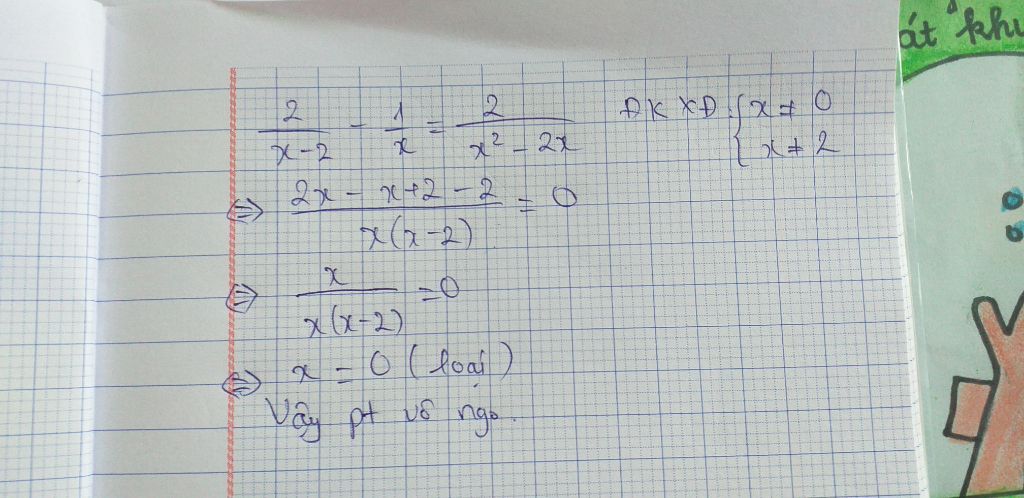 2/(x-2) - 1/x = 2/(x² - 2x) ĐKXĐ: { x ≠ 0
x ≠ 2
⇔ (2x - x+2 - 2)/(x(x-2)) = 0
⇔ x/(x(x-2)) = 0
⇔ x = 0 (loại)
Vậy pt vô ngo.
át khu